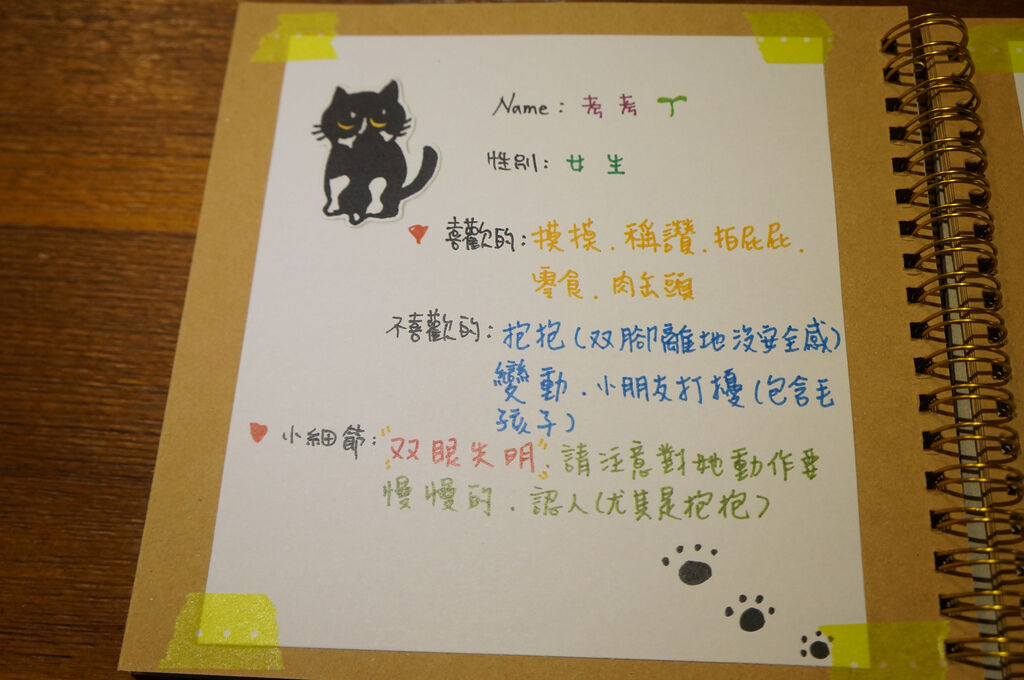 Name: 考考
性別: 女生
喜歡的: 摸摸.稱讚.拍屁屁.
零食.肉缶頭
不喜歡的: 抱抱(双腳離地沒安全感)
變動.小朋友打擾(包含毛
孩子)
小細節: "双眼失明".請注意對她動作要
慢慢的.認人(尤其是抱抱)